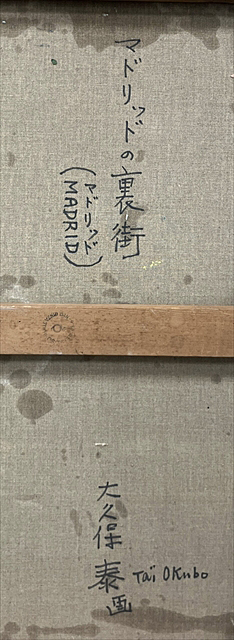 マドリッドの裏街
(マドリッド
MADRID)
大久保泰画
Taï Okubo